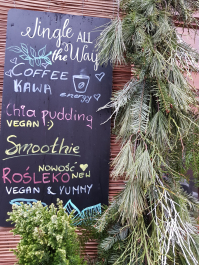 Jingle ALL
the Way
COFFEE
KAWA
energy
Chia pudding
VEGAN :)
Smoothie
NOWOŚĆ
ROŚLEKO NEW
VEGAN & YUMMY